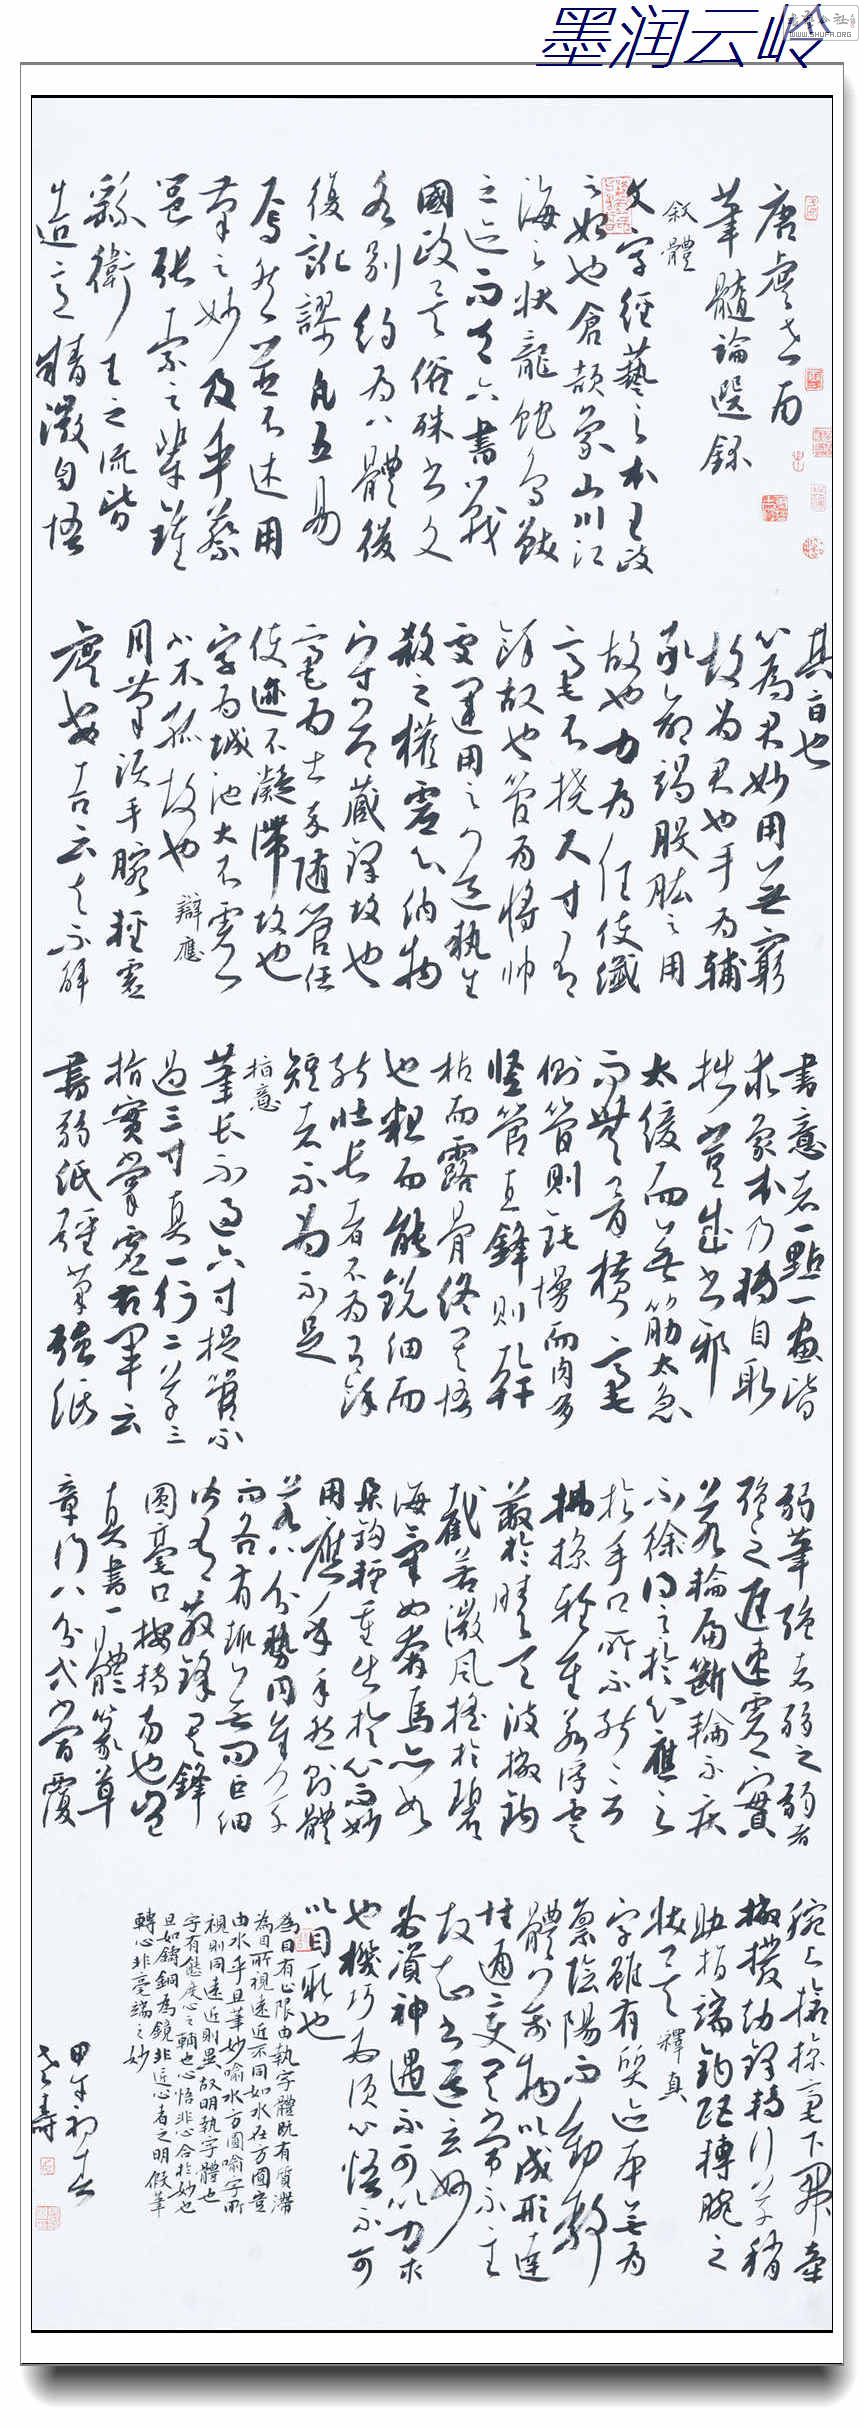 墨润云岭
WWW.SHUFA.ORG
唐虞世南
筆髓論選錄
敘體
文字經藝之本王政
之始也倉頡象山川江
海之狀龍蛇鳥獸
之迹而立六書戰
國政異俗殊書文
各別約為八體後
復訛謬凡五易
焉然並不述用
筆之妙及乎蔡
邕張索之輩鍾
繇衛王之流皆
造意精微自悟
其旨也
心為君妙用無窮
故為君也手為輔
承命竭股肱之用
故也力為任使纖
毫不撓尺寸有
餘故也管為將帥
處運用之道執生
殺之權虛心納物
守節藏鋒故也
毫為士卒隨管任
使迹不凝滯故也
字為城池大不虛
小不孤故也
辯應
用筆須手腕輕虛
虞安吉云夫未解
書意者一點一畫皆
求象本乃轉自取
拙豈成書邪
太緩而無筋太急
而無骨橫毫
側管則鈍慢而肉多
豎管直鋒則乾
枯而露骨終其悟
也粗而能銳細而
能壯長者不為有餘
短者不為不足
指意
筆長不過六寸捉管不
過三寸真一行二草三
指實掌虛右軍云
書弱紙強筆強紙
弱筆強者弱之弱者
強之遲速虛實
若輪扁斲輪不疾
不徐得之於心應之
於手口所不能言
拂掠輕重若浮雲
蔽於晴天波撇鉤
截若微風搖於碧
海氣如奔馬亦如
朵鉤輕重出於心而妙
用應乎手然則體
若八分勢同章草
而各有趣無問巨細
皆有散鋒其鋒
圓毫按轉易也豈
真書一體篆草
章行八分等當覆
腕上搶掠毫下開牽
撇撥鋒轉行草稍
助指端鉤距轉腕之
狀矣
釋真
字雖有質迹本無為
稟陰陽而動靜
體萬物以成形達
性通變其常不主
故知書道玄妙
必資神遇不可以力求
也機巧必須心悟不可
以目取也
為目有止限由執字體既有質滯
為目所視遠近不同如水在方圓豈
由水乎且筆妙喻水方圓喻字所
視則同遠近則異故明執字體也
字有態度心之輔也心悟非心合於妙也
且如鑄銅為鏡非匠者之明假筆
轉心非毫端之妙
甲午初春